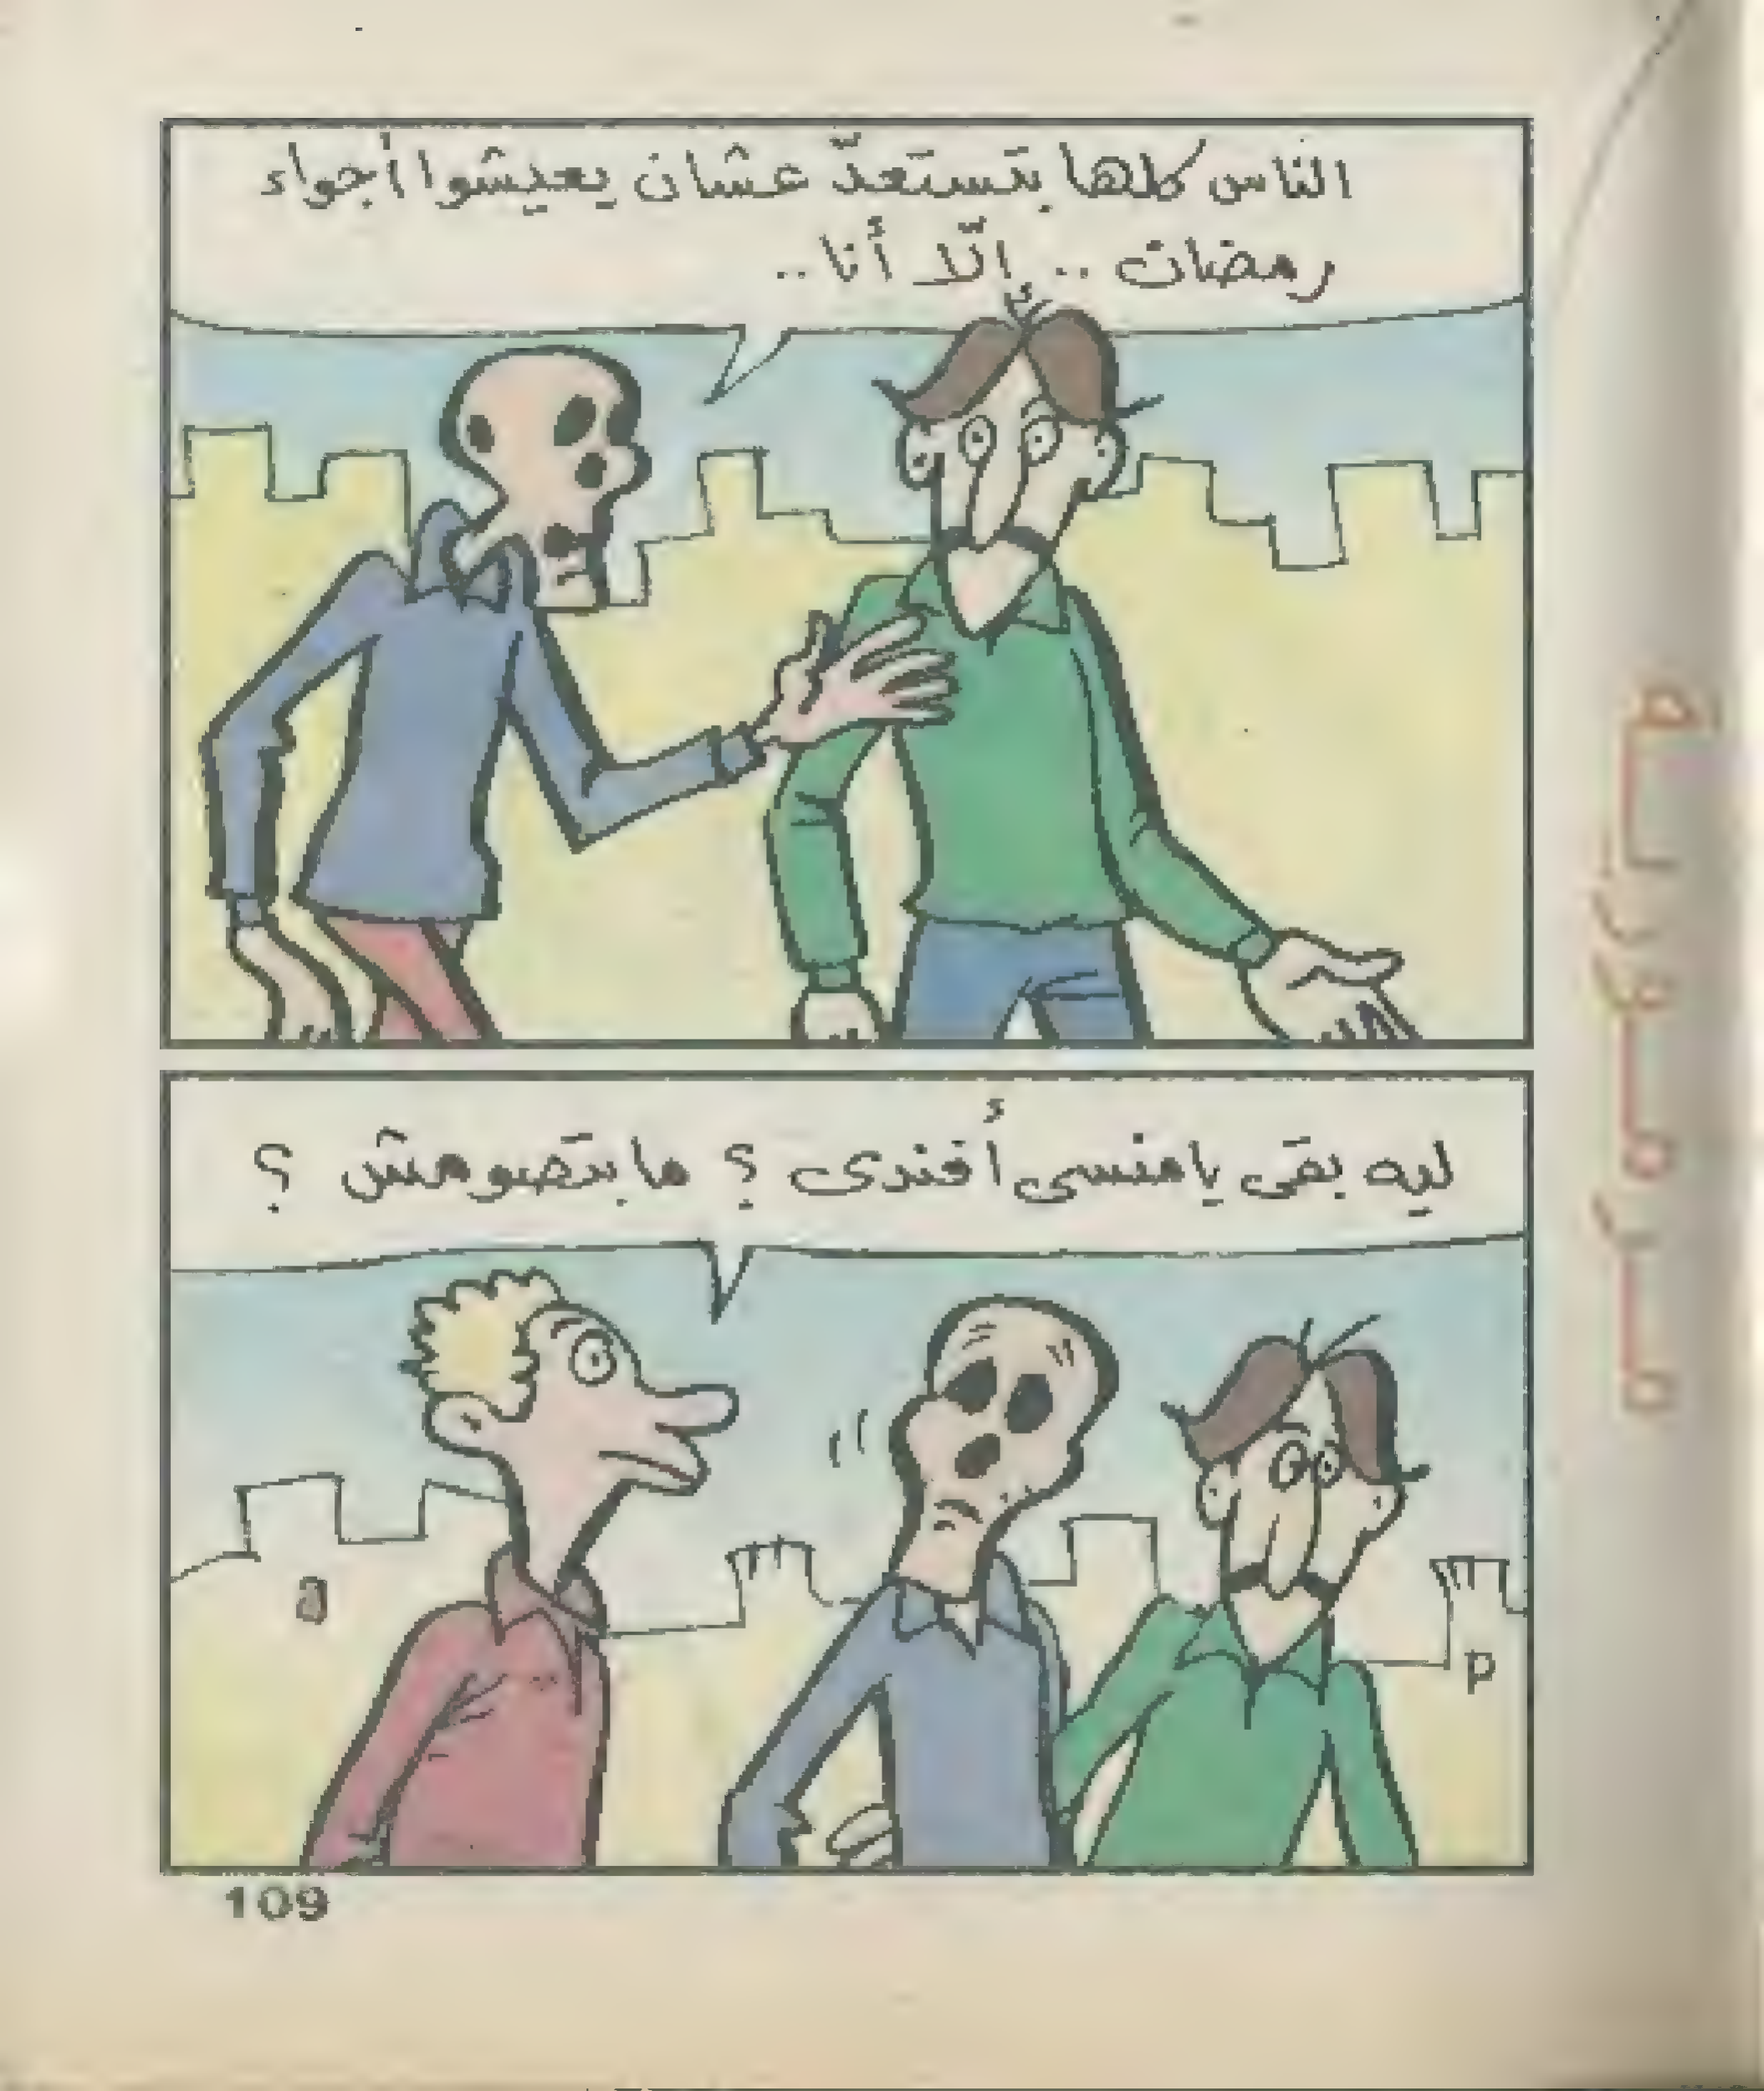 الناس كلها بتستعدّ عشان يعيشوا أجواء
رمضان .. إلّا أنا ..
ليه بقى يا منسى أفندى ؟ ما بتصومش ؟
109